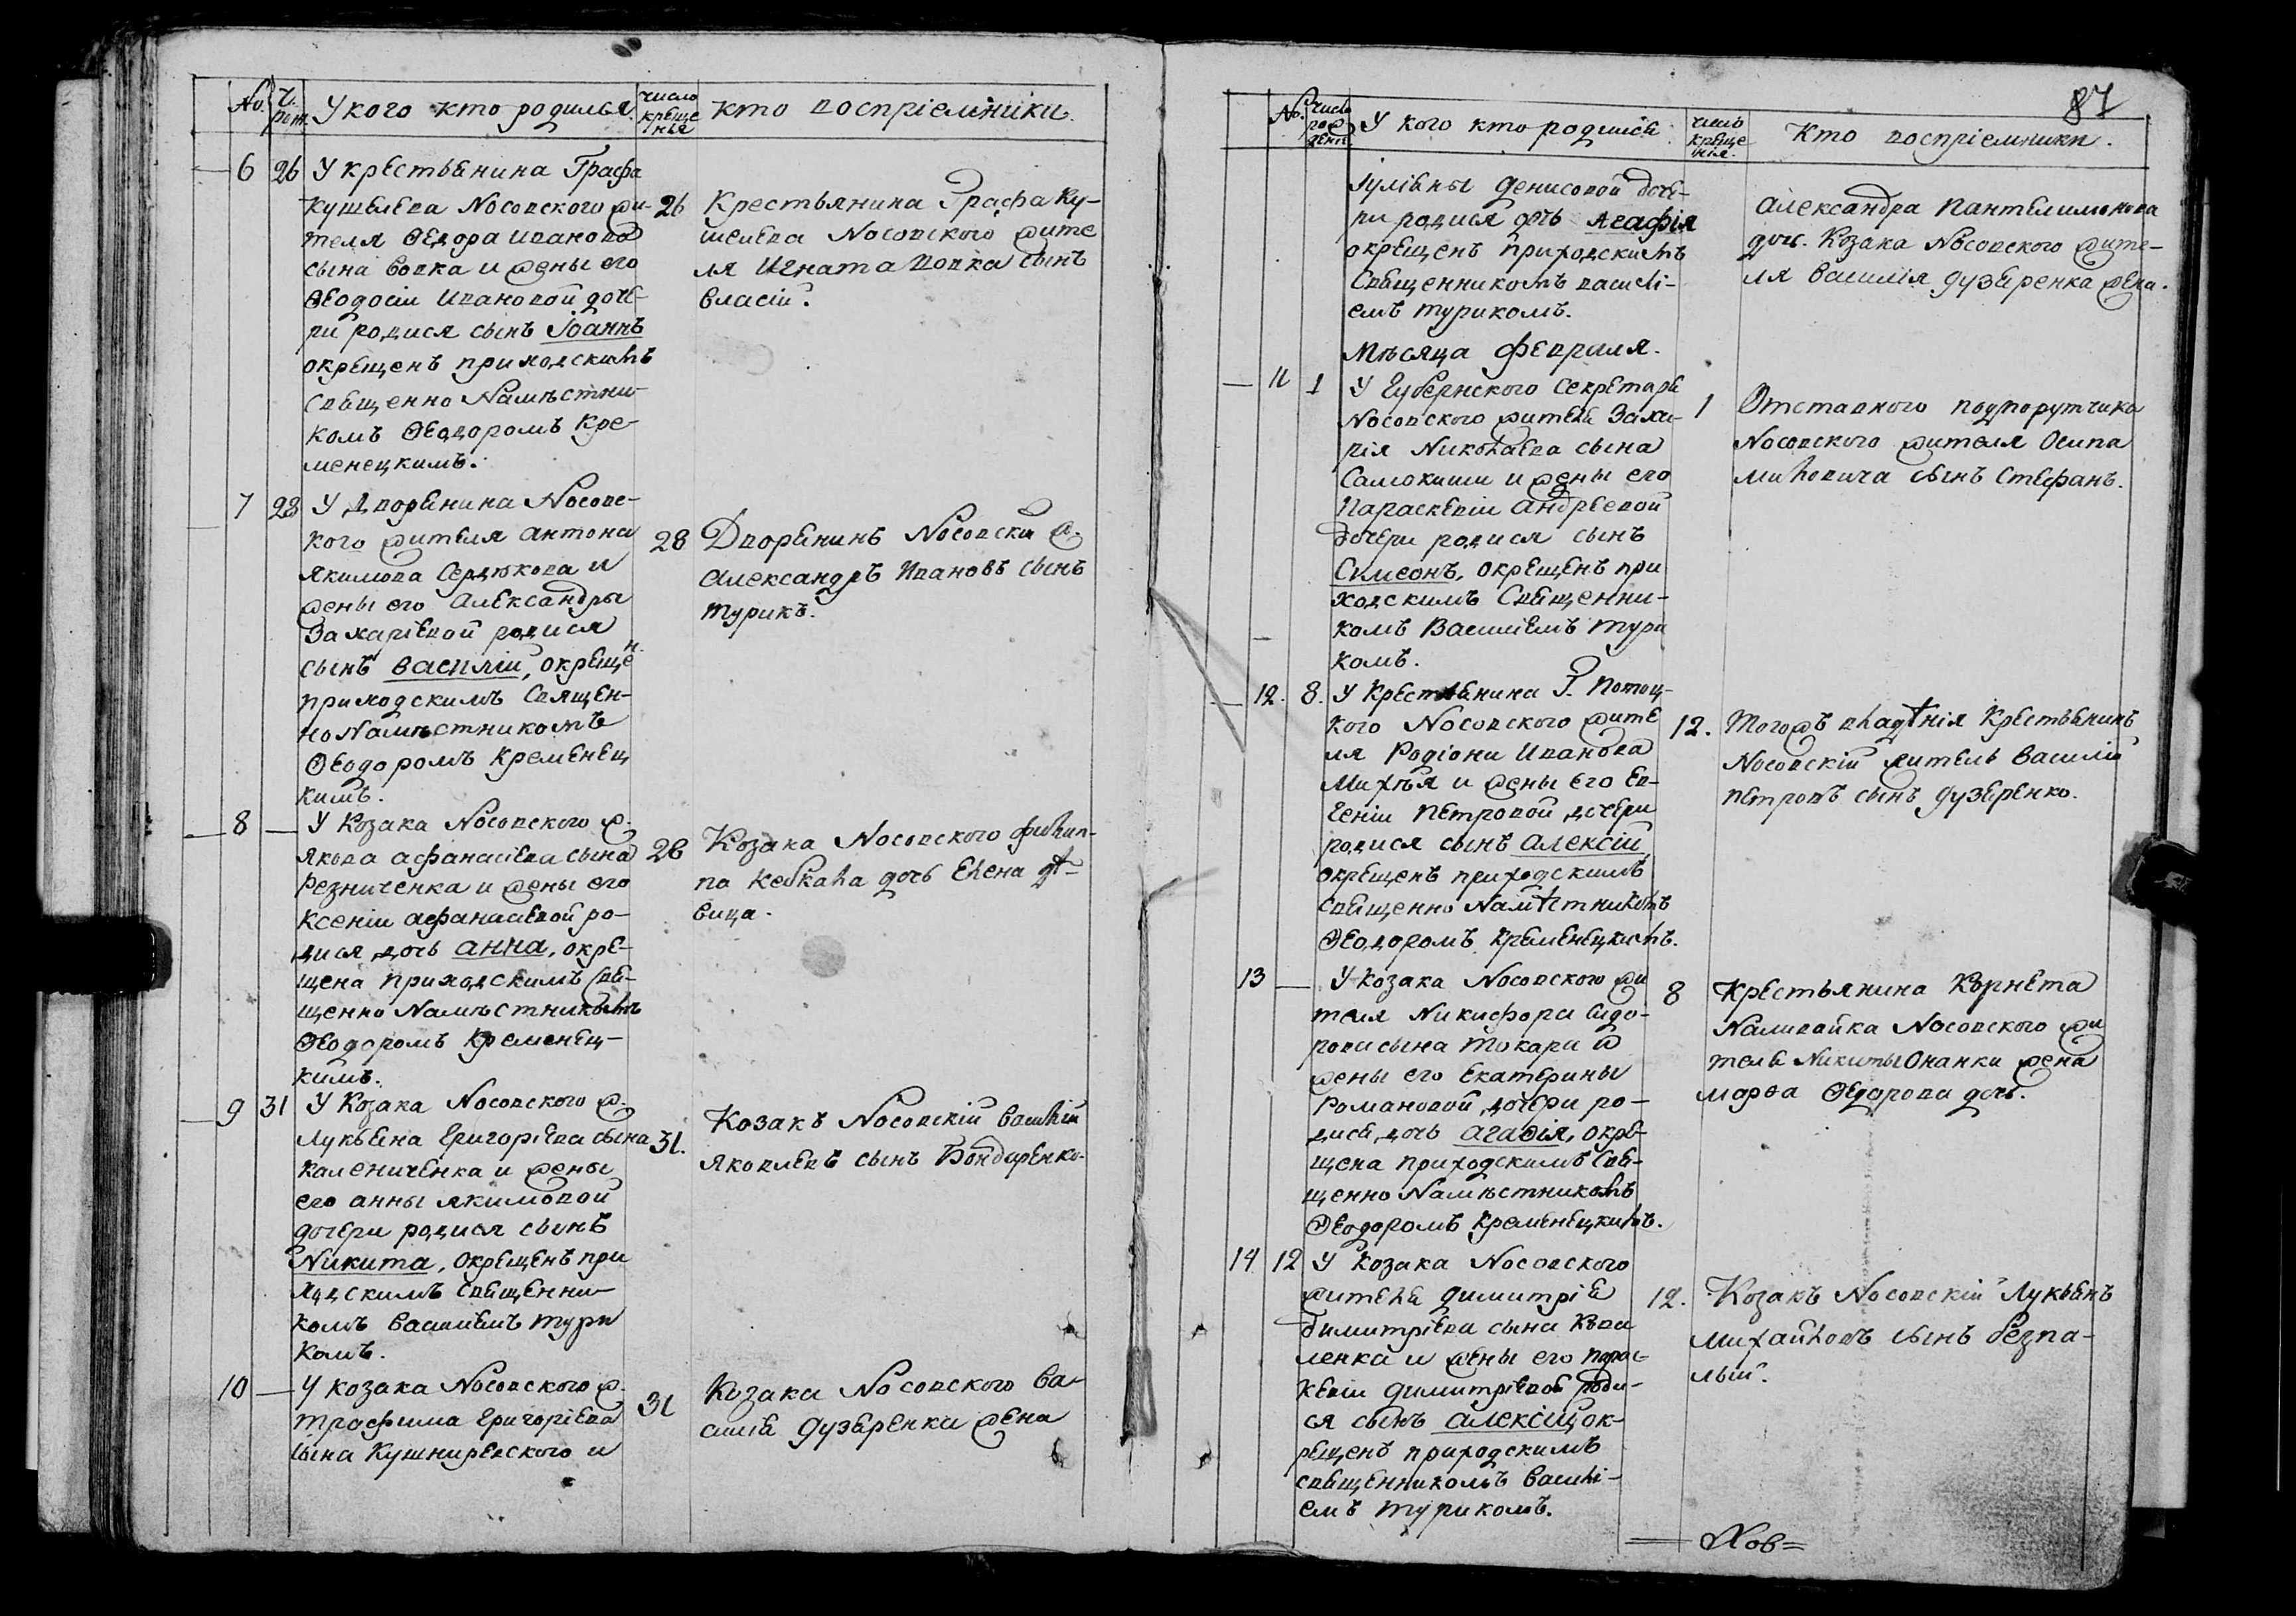 No. Ч. рож. У кого кто родился. число крещенья Кто воспріемники.
6 26 У крестьянина Графа
Кушелева Носовского жи-
теля Ѳедора Иванова
сына Вовка и жены его
Ѳеодосіи Ивановой доче-
ри родися сынъ Іоаннъ
окрещенъ приходскимъ
Священно Намѣстни-
комъ Ѳеодоромъ Кре-
менецкимъ.
26 Крестьянина Графа Ку-
шелева Носовского жите
ля Игната Вовка сынъ
Власій.
7 28 У Дворянина Носовс-
кого жителя Антона
Якимова Сердюкова и
жены его Александры
Захаріевой родися
сынъ Василій, окрещен
приходскимъ Священ-
но Намѣстникомъ
Ѳеодоромъ Кременец
кимъ.
28 Дворянинъ Носовскій ж.
Александръ Ивановъ сынъ
Турикъ.
8 — У Козака Носовского ж.
Якова Афанасіева сына
Резниченка и жены его
Ксеніи Афанасіевой ро-
дися дочь Анна, окре-
щена приходскимъ Свя-
щенно Намѣстникомъ
Ѳеодоромъ Кременец-
кимъ.
28 Козака Носовского Филип-
па Кевкала дочь Елена дѣ-
вица.
9 31 У Козака Носовского ж.
Лукьяна Григоріева сына
Калениченка и жены
его Анны Якимовой
дочери родися сынъ
Никита, окрещенъ при
ходскимъ Священни-
комъ Василіемъ Тури
комъ.
31. Козакъ Носовскій Василій
Яковлевъ сынъ Бондаренко.
10 — У Козака Носовского ж.
Трофима Григоріева
сына Кушниревского и
31 Козака Носовского Ва-
силія Дузяренка жена
87
No. число рожденія У кого кто родися число крещенія. Кто воспріемники.
Іуліяны Денисовой доче-
ри родися дочь Агафія
окрещенъ приходскимъ
Священникомъ Василі-
емъ Турикомъ.
Александра Пантелимонова
дочь. Козака Носовского жите-
ля Василія Дузяренка жена.
Мѣсяца Февраля.
11 1 У Губернского Секретаря
Носовского жителя Заха-
рія Николаева сына
Самокиши и жены его
Параскевіи Андреевой
дочери родися сынъ
Симеонъ, окрещенъ при
ходскимъ Священни-
комъ Василіемъ Тури
комъ.
1 Отставного подпорутчика
Носовского жителя Осипа
Миловича сынъ Стефанъ.
12. 8. У Крестьянина Г. Потоц-
кого Носовского жите
ля Родіона Иванова
Михѣя и жены его Ев-
геніи Петровой дочери
родися сынъ Алексій
окрещенъ приходскимъ
Священно Намѣстникомъ
Ѳеодоромъ Кременецкимъ.
12. Тогожъ владѣнія Крестьянинъ
Носовскій житель Василій
Петровъ сынъ Дузяренко.
13 — У Козака Носовского жи
теля Никифора Сидо-
рова сына Токаря и
жены его Екатерины
Романовой дочери ро-
дися дочь Агафія, окре-
щена приходскимъ Свя-
щенно Намѣстникомъ
Ѳеодоромъ Кременецкимъ.
8 Крестьянина Корнета
Наливайка Носовского жи
теля Никиты Онанки жена
Марѳа Ѳедорова дочь.
14 12 У Козака Носовского
жителя Димитрія
Димитріева сына Кова
ленка и жены его Парас-
кевіи Димитріевой роди-
ся сынъ Алексій, ок-
рещенъ приходскимъ
священникомъ Василі-
емъ Турикомъ.
12. Козакъ Носовскій Лукьянъ
Михайловъ сынъ Безпа-
лый.